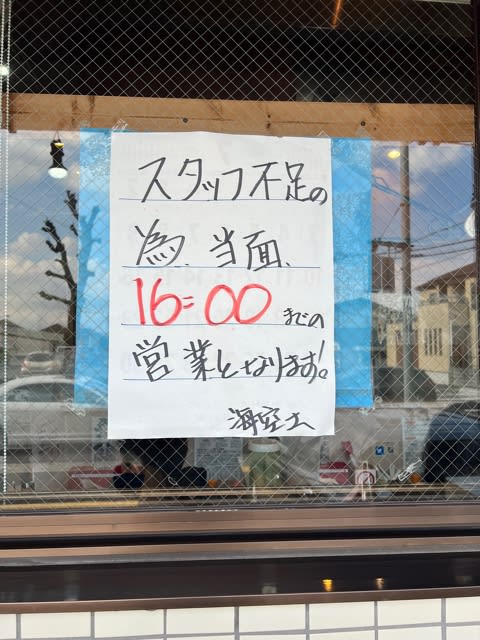 スタッフ不足の
為、当面、
16:00までの
営業となります!。
海空土